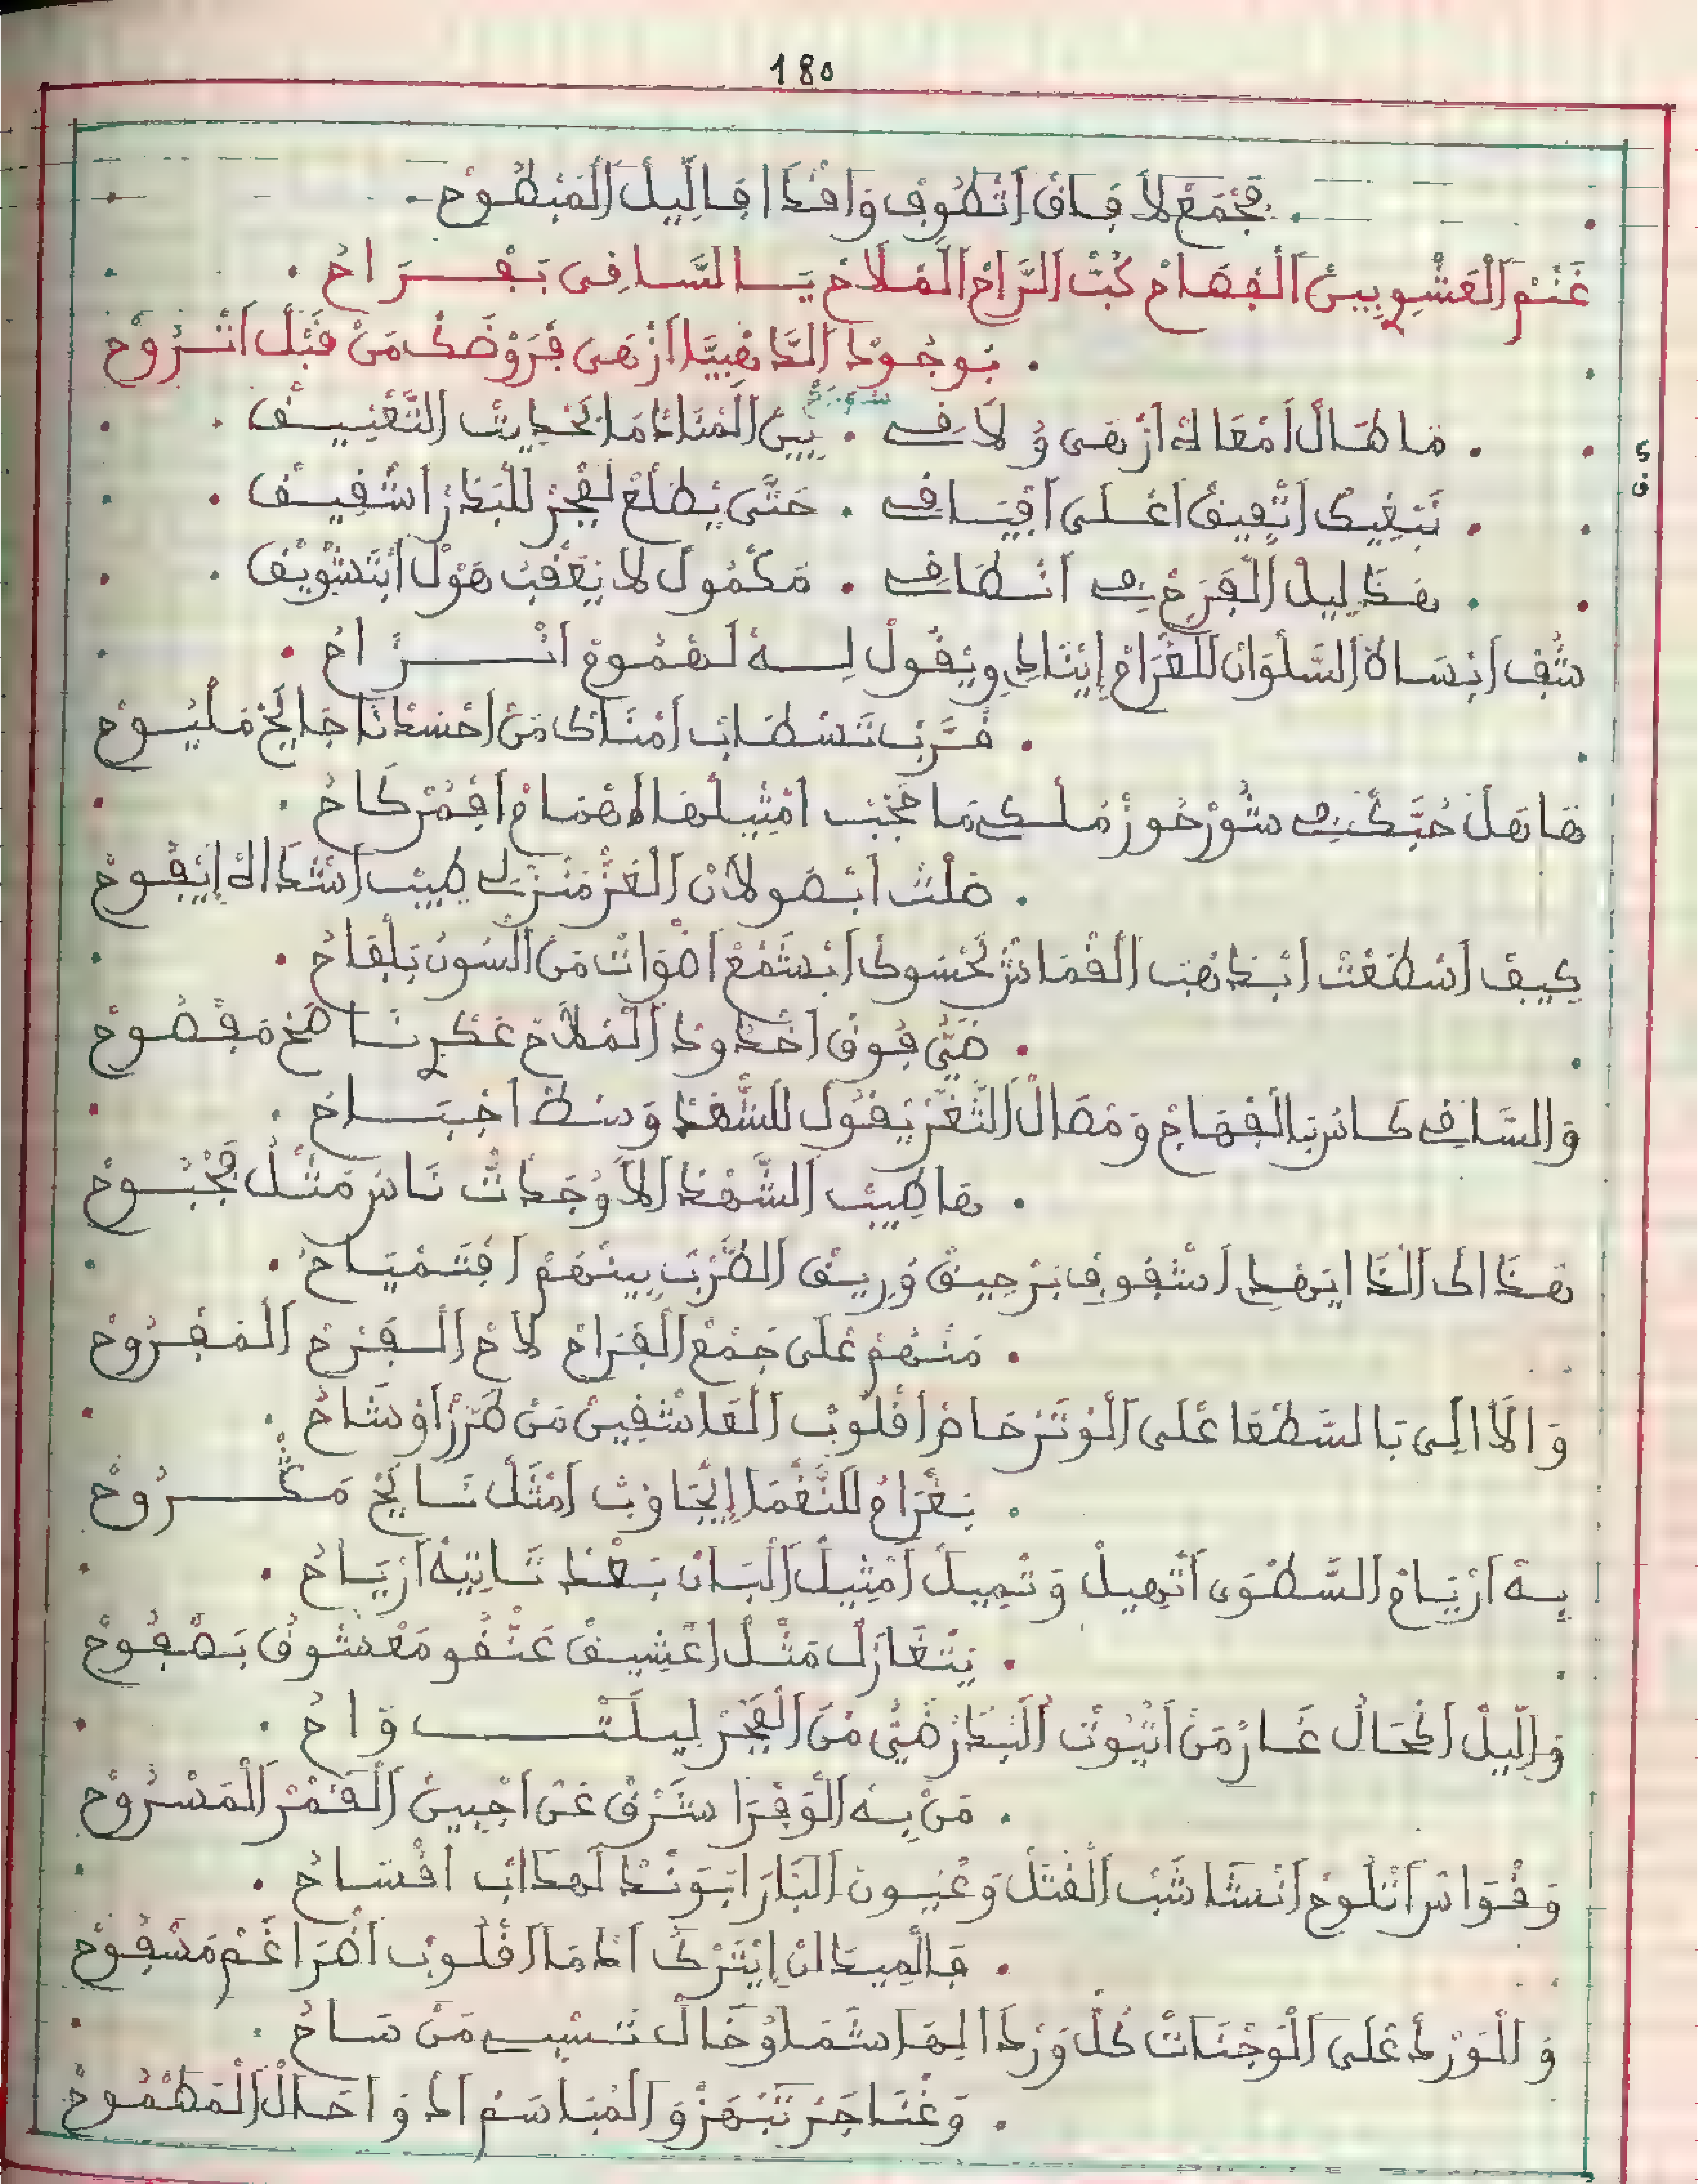 180
فَجْمَعْ لاَفَاقْ اَتْطُوفْ وَاهْدَا فَالِّيلْ اَلْمَبْطُوحْ
غَنْمْ اَلْعَشْوِيينْ اَلْفْصَاحْ كُبّْ اَلرَّاحْ اَلْمْلاَحْ يَا السَّاقِي بَفْرَاحْ
بَوجُودْ الدَّاهْبِيَّا اَزْهَى فَرَوْضَكْ مَنْ قَبْلْ اَتْرُوحْ
مَا طَالْ اَمْعَاكْ اَزْهَى وُلاَفِي . بِينْ اَلْمْنَادْمَا لَحْدِيثْ التَّعْنِيفْ
نَبْغِيكْ اَتْفِيقْ اَعْلَى اَقْيَافِي . حَتَّى يَطْلَعْ لَفْجَرْ لَلْبَدْرْ اَشْقِيقْ
هَدَ لِيلْ اَلْفَرْحْ اَنْطَافِي . مَكْمُولْ لاَ يَعْقَبْ هَوْلْ اَبْتَشْوِيقْ
شُفْ اَنْسَاهْ السَّلْوَانْ لَلغْرَامْ اِينَادِي وِيْقُولْ لِهْ لَهْمُومْ اَنْزَاحُ
قَرَّبْ نَسْطَابْ اَمْنَاكْ مَنْ اَحْسَدْنَا جَايَحْ مَلْيُوحْ
هَا هَلْ حُبَّكْ شُورْ حُوزْ مُلْكِي مَا حْجَبْ اَمْثِيلْهَا اَدْهَامْ اَقْمَرْ كَاحُ
ضَلْتْ اَبْضَو لاَنْ اَلْعَزْ مَنْزْلِي طِيبْ اَشْدَاكْ اِيْفُوحْ
كِيفْ اَسْطَعْتْ اَبْدَهْبْ اَلْقْمَاشْ لَحْسُوكْ اَبْشَمْعْ اَضْوَاتْ مَنْ السُّونْ بَلْقَاحُ
ضَيّْ فُوقْ اَخْدُودْ اَلْمْلاَحْ عَكْرِ نَاصَحْ مَفْضُوحْ
وَالسَّاقِي كَاسْ بَالْفْصَاحْ وَمْصَالْ الثَّغَرْ يَقُولْ للشَّهْدْ وَسْطْ اَجْبَاحْ
هَا طِيبْ الشَّهْدْ اَلاَّ وُجَدْتْ نَاسْ مَثْلْ مَجْبُوحْ
هَدَاكْ اَلْدَا اِيْهْدِي اَشْفُوفْ بَرْحِيقْ وُرِيقْ الطَّرْبْ بِينْهُمْ اَفْتَمْيَاحُ
مَنْهُمْ عْلَى جَمْعْ اَلْقْرَاحْ لاَحْ اَلْفَرْحْ اَلْمَفْرُوحْ
وَالاَّلِي بَالسَّطْعَا عْلَى اَلْوْتَرْ حَاضْ اَقْلُوبْ اَلْعَاشْقِينْ مَنْ طَرْزْ اَوْشَاحُ
بَغْرَامْ لَلنَّغْمَا اِيْجَاوَبْ اَمْثَلْ نَايَحْ مَكْرُوحْ
بِهْ اَرْيَامْ السَّطْوَى اَتْهِيلْ وَتْمِيلْ اَمْثِيلْ اَلْبَانْ بَعْدْ تَاتِيهْ اَرْيَاحُ
يَتْغَازَلْ مَثْلْ اَعْشِيقْ عَنْقُو مَعْشُوقْ بَصْفُوحْ
وَالِّيلْ لْحَالْ غَارْ مَنْ اَتْيُوتْ اَلْبَدْرْ ضَيّْ مْنَ اَلْفْجَرْ لِيلَتْ وَاحُ
مَنْ بِهْ اَلْوَفْرَا شَرْقْ عَنْ اَجْبِينْ اَلْقَمْرْ اَلْمَسْرُوحْ
وَقْوَاسْ اَتْلُوحْ اَنْشَاشَبْ اَلْقْتَلْ وَعْيُونْ اَلْبَارَا بَوَنْدْ لَهْدَابْ اَقْسَاحُ
فَالْمِيدَانْ اِيْتْرَكْ اَدْمَا اَقْلُوبْ اَضْرَاغَمْ مَسْفُوحْ
وَالْوَرْدْ عْلَى اَلْوَجْنَاتْ كُلّْ وَرْدَا لِهَا شَمَا وُخَالْ تَسْبِي مَنْ سَاحُ
وَغْنَاجَرْ تَبْهَرْ وَالْمْبَاسَمْ اَدْوَا حَالْ اَلْمَطْمُوحْ